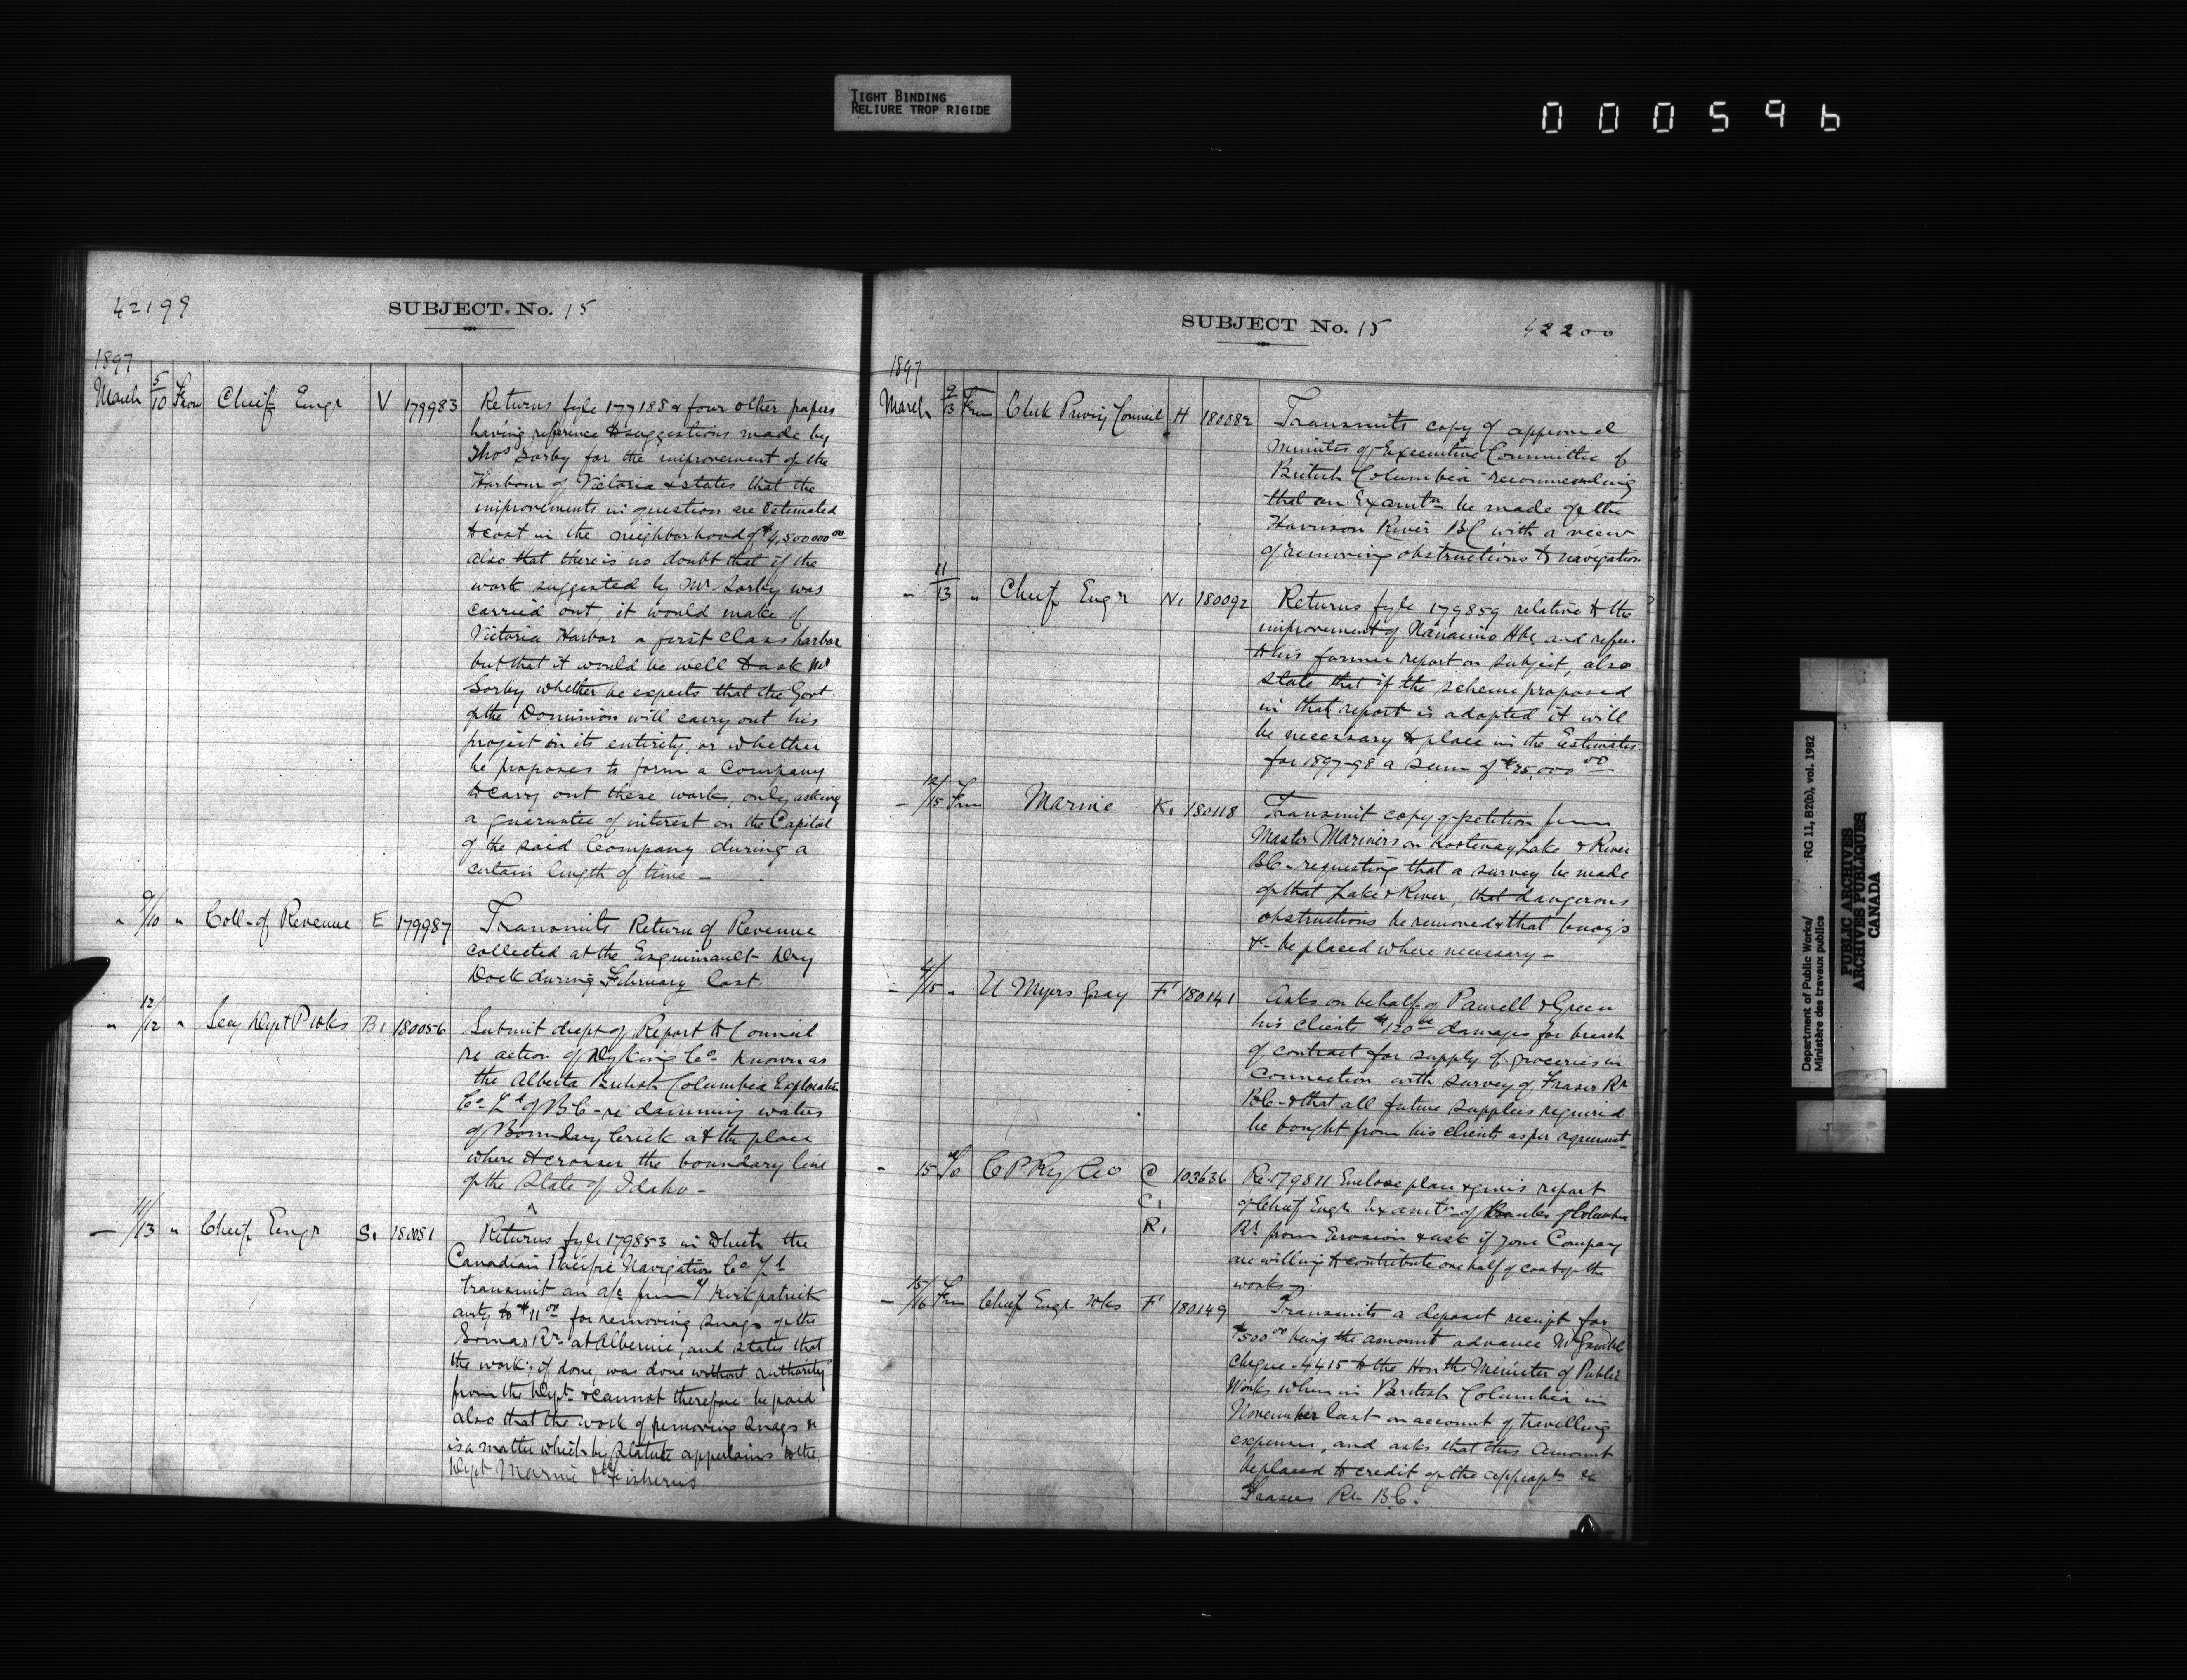 TIGHT BINDING
RELIURE TROP RIGIDE
0 0 0 5 9 6
42199
SUBJECT. No. 15
1897
March 5/10 From Chief Engr V 179983 Returns fyle 177188 & four other papers
having reference to suggestions made by
Thos Sorby for the improvement of the
Harbour of Victoria & states that the
improvements in question are estimated
to cost in the neighborhood of $4,500000 00
also that there is no doubt that if the
work suggested by Mr Sorby was
carried out it would make of
Victoria Harbor a first class harbor
but that it would be well to ask Mr
Sorby whether he expects that the Govt
of the Dominion will carry out his
project in its entirety, or whether
he proposes to form a Company
to carry out these works, only asking
a guarantee of interest on the Capital
of the said Company during a
certain length of time -
" 9/10 " Coll- of Revenue E 179987 Transmits Return of Revenue
collected at the Esquimault Dry
Dock during February last
" 12/12 " Secy Dept P Wks B1 180056 Submit draft of Report to Council
re action of Dyking Co- known as
the Alberta British Columbia Exploration
Co- Ld of BC- re damming waters
of Boundary Creek at the place
where it crosses the boundary line
of the State of Idaho -
- 11/13 " Chief Engr S1 180081 Returns fyle 179853 in which the
Canadian Pacific Navigation Co Ld
transmit an a/c from Kirkpatrick
amtg to $11 00 for removing snags of the
Somas Rr- at Alberni, and states that
the work, if done, was done without authority
from the Dept- & cannot therefore be paid
also that the work of removing snags &c
is a matter which by Statute appertains to the
Dept Marine & Fisheries
SUBJECT No. 15
42200
1897
March 9/13 From Clerk Privy Council H 180082 Transmits copy of approved
minutes of Executive Committee of
British Columbia recommending
that an Examtn be made of the
Harrison River BC with a view
of removing obstructions to navigation
" 11/13 " Chief Engr N1 180092 Returns fyle 179859 relative to the
improvement of Nanaimo Hbr, and refers
to his former report on subject, also
state that if the scheme proposed
in that report is adopted it will
be necessary to place in the Estimates
for 1897-98 a sum of $25,000 00
- 12/15 From Marine K1 180118 Transmit copy of petition from
Master Mariners on Kootenay Lake & River
BC- requesting that a survey be made
of that Lake & River, that dangerous
obstructions be removed & that buoys
&c- be placed where necessary -
- 4/15 " U Myers Gray F1 180141 Asks on behalf of Pamell & Green
his clients $120 damages for breach
of contract for supply of groceries in
connection with survey of Fraser Rr
BC- & that all future supplies required
be bought from his clients as per agreement
- 15 To C P Ry Co C 103636 Re 179811 Enclose plan & gives report
C1 of Chief Engr Examtn of Banks of Columbia
R1 Rr from Erosion & ask if your Company
are willing to contribute one half of cost of the
works -
- 15/16 From Chief Engr Wks F1 180149 Transmits a deposit receipt for
$500 00 being the amount advance Mr Gamble
cheque- 4415 to the Hon the Minister of Public
Works when in British Columbia in
November last on account of travelling
expenses, and asks that this amount
be placed to credit of the
Frasers Rr B.C.
Department of Public Works/
Ministère des travaux publics
RG 11, B2(b), vol. 1982
PUBLIC ARCHIVES
ARCHIVES PUBLIQUES
CANADA